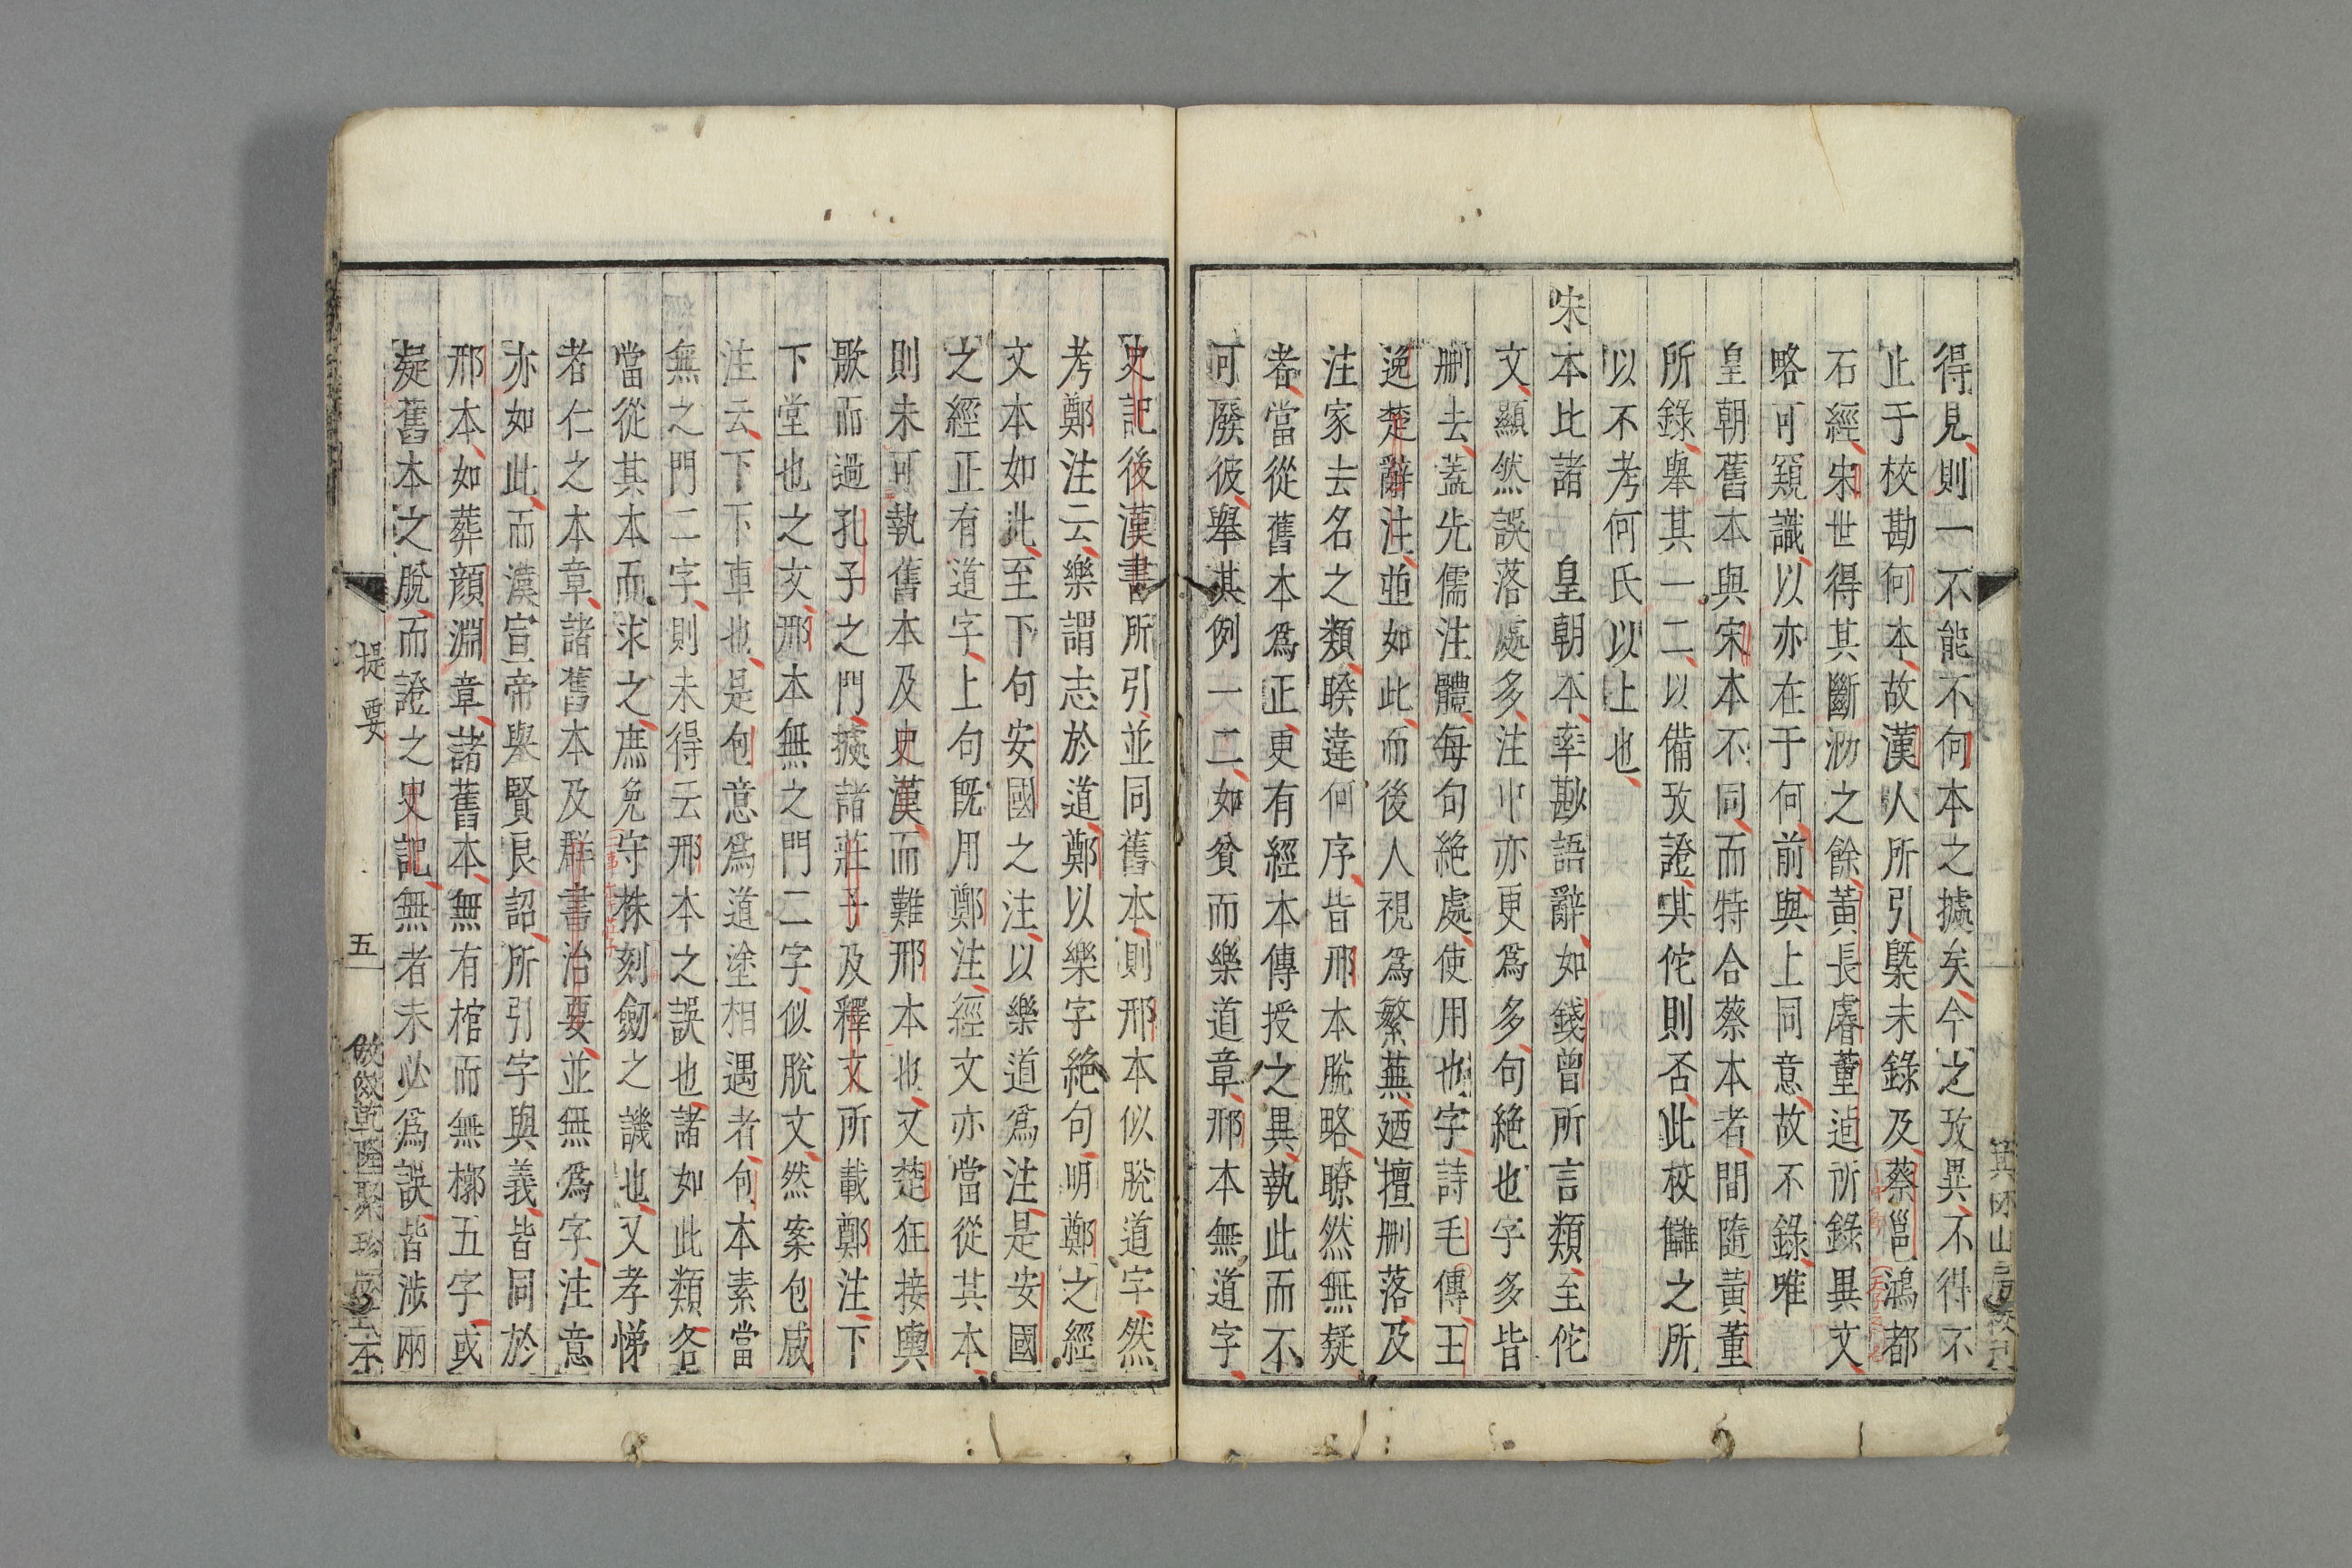 得見則一不能不何本之據矣今之攷異不得不
止于校勘何本故漢人所引槩未錄及蔡邕鴻都
石經宋世得其斷泐之餘黃長睿董逌所錄異文
略可窺識以亦在于何前與上同意故不錄唯
皇朝舊本與宋本不同而特合蔡本者間隨黃董
所錄舉其一二以備攷證其佗則否此校讎之所
以不考何氏以上也
宋本比諸 皇朝本率尠語辭如錢曾所言類至佗
文顯然誤落處多注中亦更爲多句絶也字多皆
刪去蓋先儒注體每句絶處使用也字詩毛傳王
逸楚辭注並如此而後人視爲繁蕪廼擅刪落及
注家去名之類暌違何序皆邢本脫略瞭然無疑
者當從舊本爲正更有經本傳授之異執此而不
可廢彼舉其例一二如貧而樂道章邢本無道字
史記後漢書所引並同舊本則邢本似脫道字然
考鄭注云樂謂志於道鄭以樂字絶句明鄭之經
文本如此至下句安國之注以樂道爲注是安國
之經正有道字上句旣用鄭注經文亦當從其本
則未可執舊本及史漢而難邢本也又楚狂接輿
歌而過孔子之門據諸莊子及釋文所載鄭注下
下堂也之文邢本無之門二字似脫文然案包咸
注云下下車也是包意爲道塗相遇者何本素當
無之門二字則未得云邢本之誤也諸如此類各
當從其本而求之庶免守株刻劒之譏也又孝悌
者仁之本章諸舊本及群書治要並無爲字注意
亦如此而漢宣帝舉賢良詔所引字與義皆同於
邢本如葬顔淵章諸舊本無有棺而無槨五字或
疑舊本之脫而證之史記無者未必爲誤皆涉兩
提要
五
倣乾隆聚珍